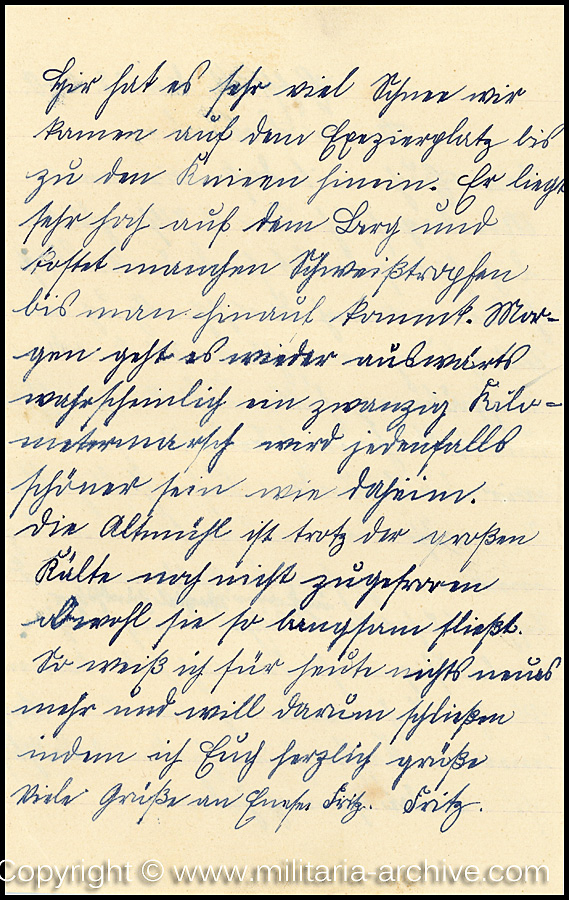 Hir hat es sehr viel Schnee wir
kamen auf dem Exezierplatz bis
zu den Knieen hinein. Er liegt
sehr hoch auf dem Berg und
kostet manchen Schweißtropfen
bis man hinauf kommt. Mor-
gen geht es wieder auswärts
wahrscheinlich ein zwanzig Kilo-
metermarsch wird jedenfalls
schöner sein wie daheim.
Die Altmühl ist trotz der großen
Kälte noch nicht zugefroren
obwohl sie so langsam fließt.
So weiß ich für heute nichts neues
mehr und will darum schließen
indem ich Euch herzlich grüße
Viele Grüße an Fritz. Fritz.
Copyright © www.militaria-archive.com